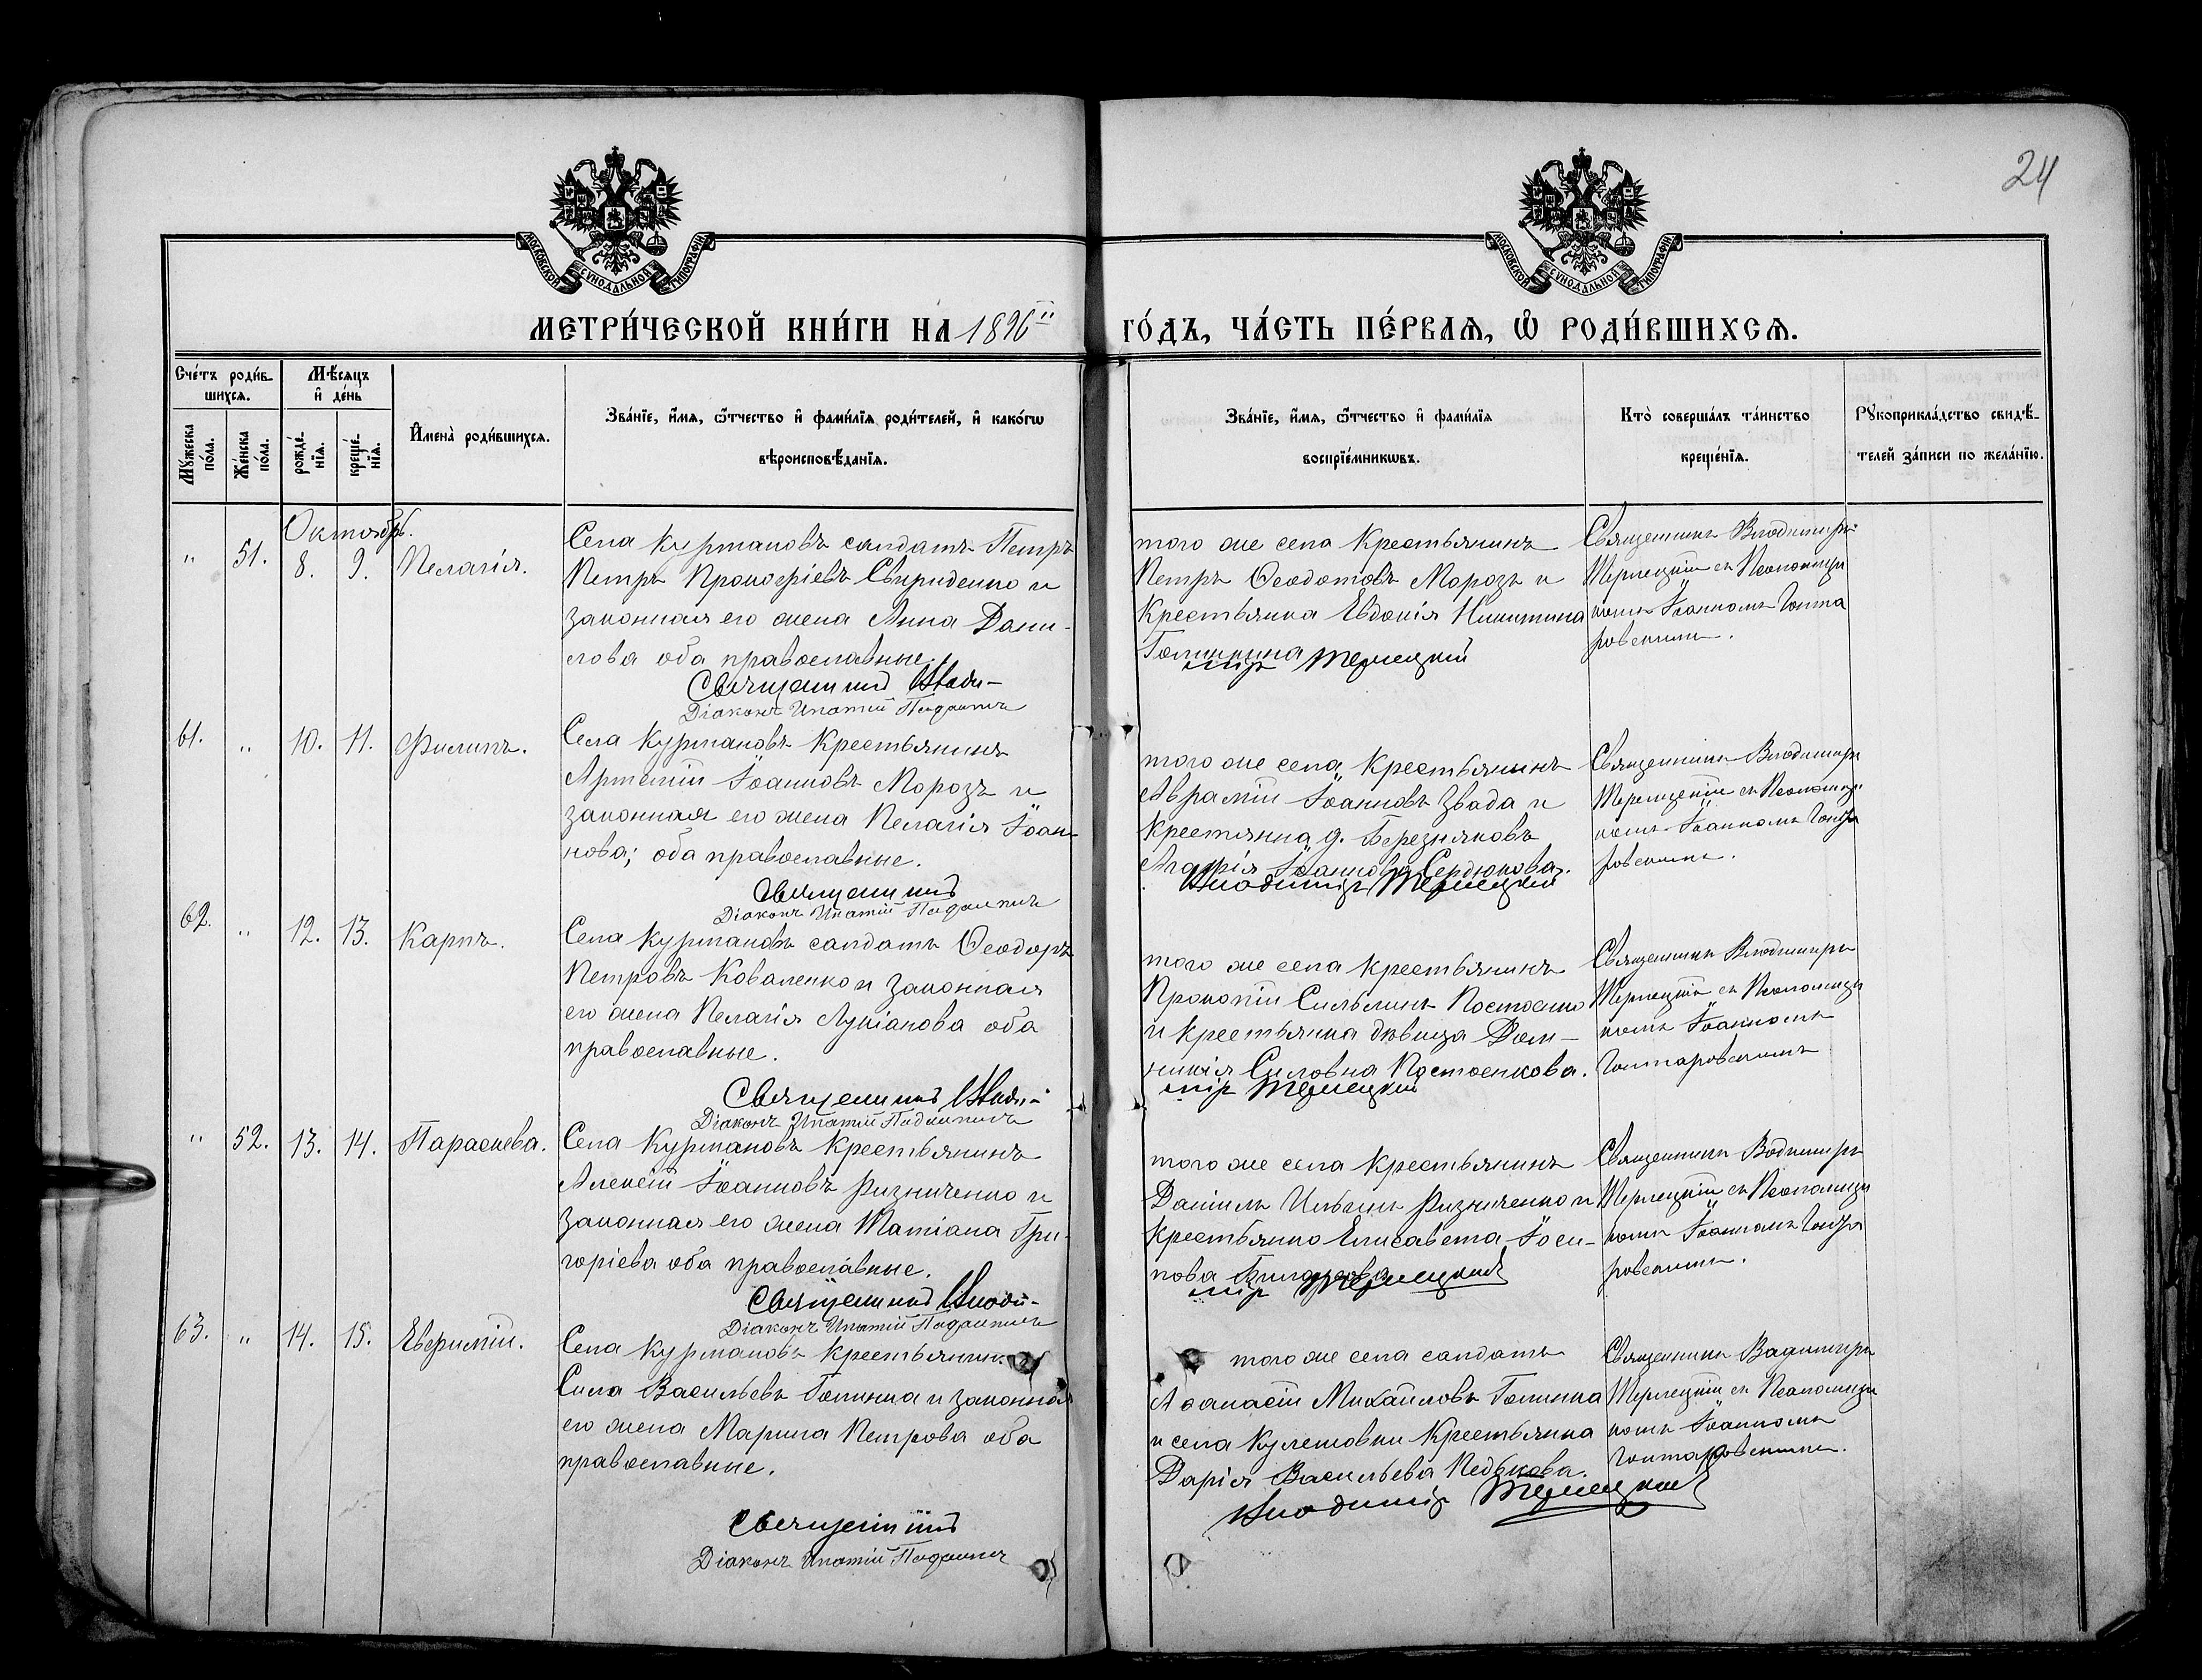 24
МОСКОВСКОЙ СѴНОДАЛЬНОЙ ТИПОГРАФІИ
МОСКОВСКОЙ СѴНОДАЛЬНОЙ ТИПОГРАФІИ
МЕТРИ́ЧЕСКОЙ КНИ́ГИ НА 1896 ГО́ДЪ, ЧА́СТЬ ПЕ́РВАѦ, Ѡ РОДИ́ВШИХСѦ.
Счéтъ роди́в-
шихсѧ.
Мꙋ́жеска по́ла.
Же́нска по́ла.
Мѣ́сѧцъ и҆ де́нь
рожде́-нїѧ.
креще́-нїѧ.
И҆мена̀ роди́вшихсѧ.
Зва́нїе, и҆́мѧ, ѻ҆́тчество и҆ фами́лїѧ роди́телей, и҆ како́гѡ
вѣроисповѣ́данїѧ.
Зва́нїе, и҆́мѧ, ѻ҆́тчество и҆ фами́лїѧ
воспрїе́мникѡвъ.
Кто̀ соверша́лъ та́инство
креще́нїѧ.
Рꙋкоприкла́дство свидѣ́-
телей за́писи по жела́нїю.
Октябрь.
" 51. 8. 9. Пелагія.
Села Курмановъ солдатъ Петръ
Петръ Прокофіевъ Свириденко и
законная его жена Анна Дани-
лова оба православные.
Священникъ Влади-
Діаконъ Ипатій
того же села Крестьянинъ
Петръ Ѳеодотовъ Морозъ и
Крестьянка Евдокія Никитина
Голинкина
миръ Терлецкій
Священникъ Владимиръ
Терлецкій съ Псаломщи
комъ Іоанномъ Гонта
ровскимъ.
61. " 10. 11. Филипъ.
Села Курмановъ Крестьянинъ
Артемій Іоанновъ Морозъ и
законная его жена Пелагія Іоан-
нова; оба православные.
Священникъ
Діаконъ Ипатій
того же села, Крестьянинъ
Аврамій Іоанновъ Звада и
Крестянка д. Березняковъ
Іоаннова Сердюкова.
Владимиръ Терлецкій
Священникъ Владимиръ
Терлецкій съ Псаломщи
комъ Іоанномъ Гонта
ровскимъ.
62. " 12. 13. Карпъ.
Села Курмановъ солдатъ Ѳеодоръ
Петровъ Коваленко и законная
его жена Пелагія Лукіанова оба
православные.
Священникъ Влади-
Діаконъ Ипатій
того же села крестьянинъ
Прокопій Сильвинъ Постоенко
и крестьянка дѣвица Дом-
никія Силовна Постоенкова.
миръ Терлецкій
Священникъ Владимиръ
Терлецкій съ Псаломщи
комъ Іоанномъ
Гонтаровскимъ
" 52. 13. 14. Параскева.
Села Курмановъ Крестьянинъ
Алексій Іоанновъ Ризниченко и
законная его жена Татіана Гри-
горіева оба православные.
Священникъ Влади-
Діаконъ Ипатій
того же села Крестьянинъ
Даніилъ Ильинъ Ризниченко и
Крестьянка Елисавета Іоси-
пова
миръ Терлецкій
Священникъ Водимиръ
Терлецкій съ Псаломщи
комъ Іоанномъ Гонта
ровскимъ.
63. " 14. 15. Евфимій.
Села Курмановъ Крестьянинъ
Сила Васильевъ Голинка и законная
его жена Марина Петрова оба
православные.
Священникъ
Діаконъ Ипатій
того же села солдатъ
Аѳанасій Михайловъ Голинка
и села Кулешовки Крестьянка
Дарія Васильева Педькова.
Владимиръ Терлецкій
Священникъ Вадимиръ
Терлецкій съ Псаломщи
комъ Іоанномъ
Гонтаровскимъ.